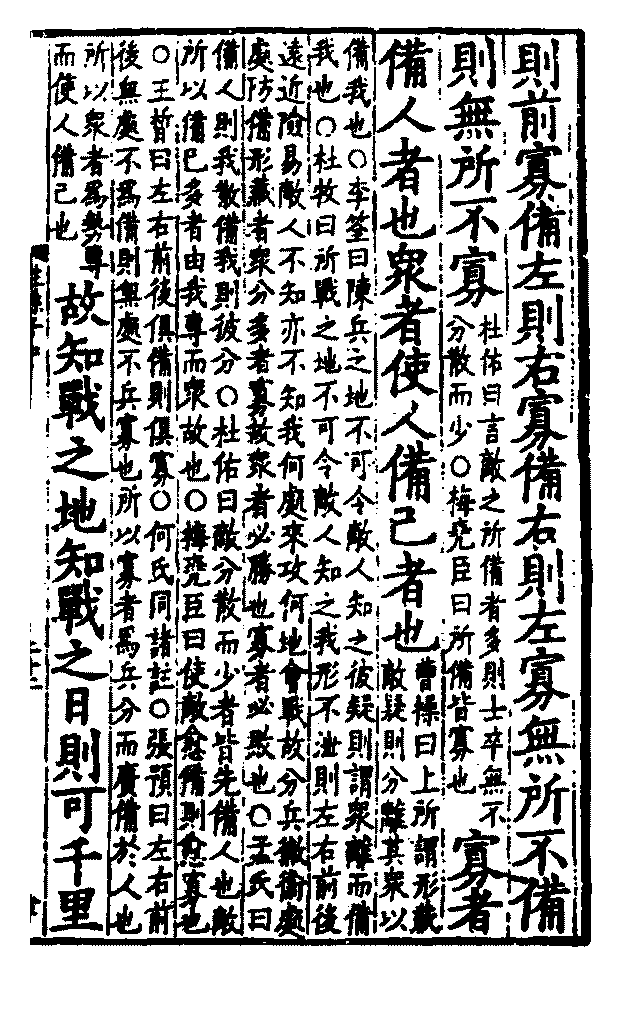 則前寡備左則右寡備右則左寡無所不備
則無所不寡
杜佑曰言敵之所備者多則士卒無不
分散而少〇梅堯臣曰所備皆寡也
寡者
備人者也眾者使人備己者也
曹操曰上所謂形藏
敵疑則分離其眾以
備我也〇李筌曰陳兵之地不可令敵人知之彼疑則謂眾離而備
我也〇杜牧曰所戰之地不可令敵人知之我形不泄則左右前後
遠近險易敵人不知亦不知我何處來攻何地會戰故分兵徹衛處
處防備形藏者眾分多者寡故眾者必勝也寡者必敗也〇孟氏曰
備人則我散備我則彼分〇杜佑曰敵分散而少者皆先備人也敵
所以備己多者由我專而眾故也〇梅堯臣曰使敵愈備則愈寡也
〇王晳曰左右前後俱備則俱寡〇何氏同諸註〇張預曰左右前
後無處不為備則無處不兵寡也所以寡者為兵分而廣備於人也
所以眾者為勢專
而使人備己也
故知戰之地知戰之日則可千里